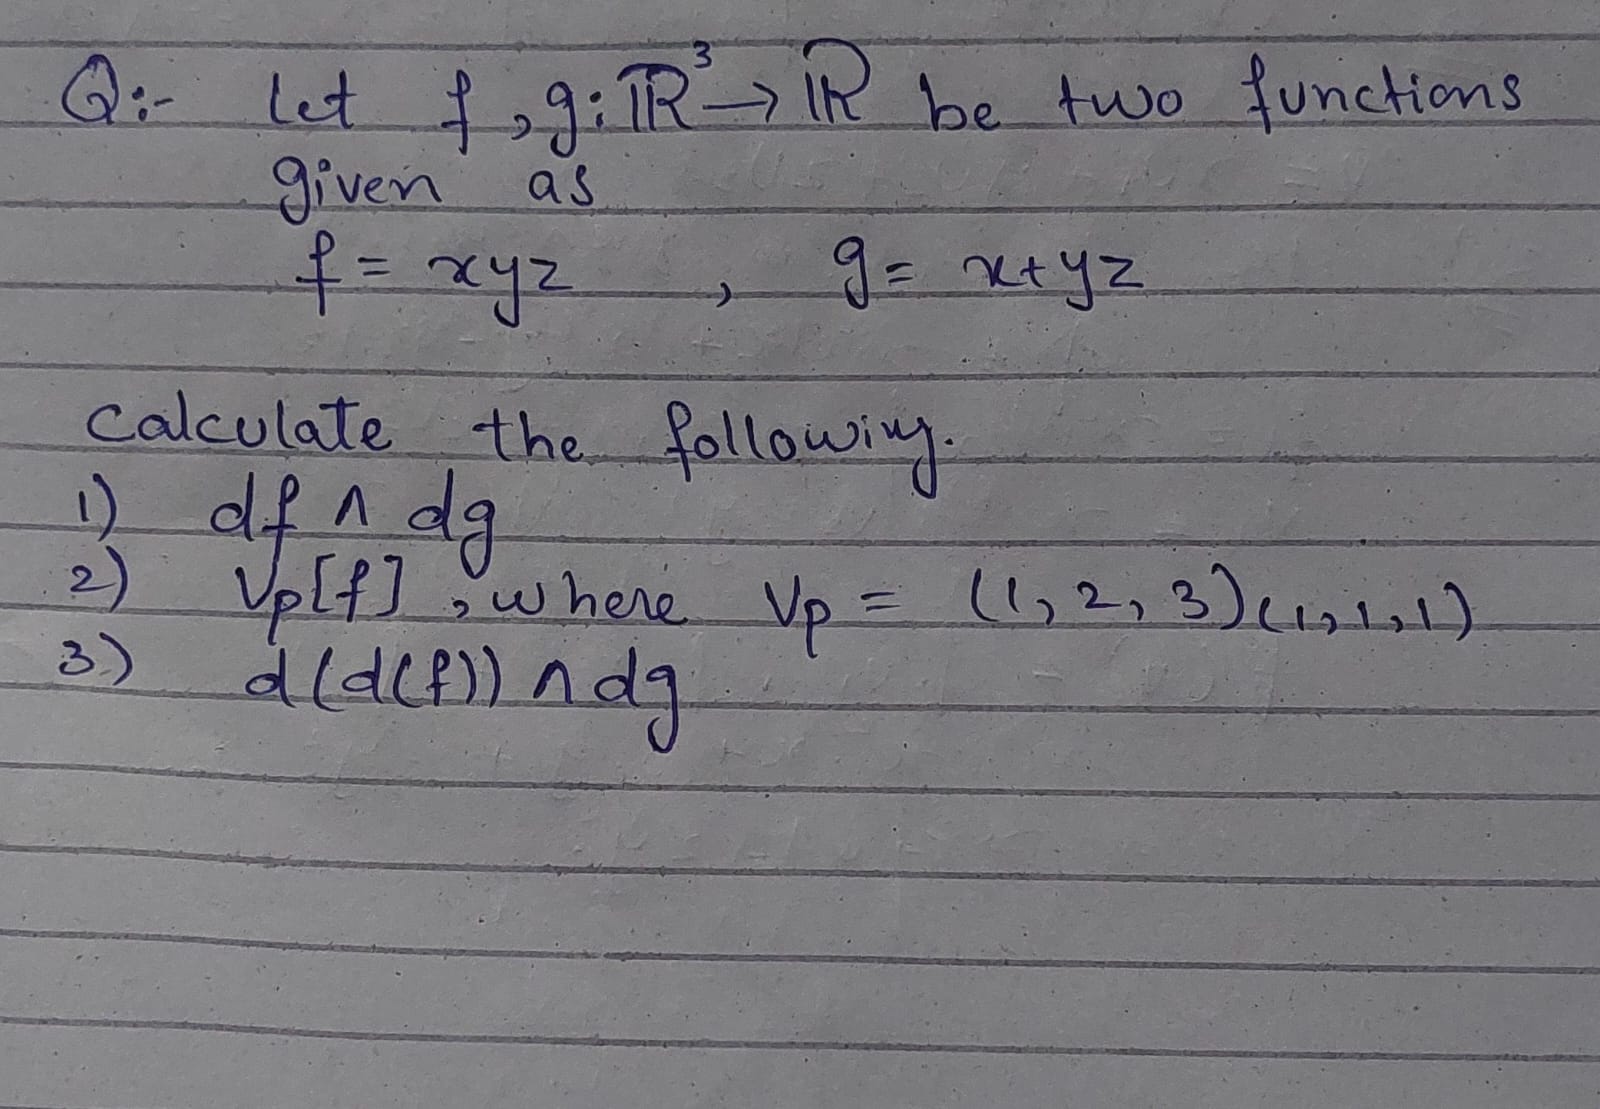 Q:- Let f, g: ℝ³ → ℝ be two functions
given as
f = xyz , g = x+yz
Calculate the following.
1) df ∧ dg
2) Vp[f], where Vp = (1, 2, 3)(1,1,1)
3) d(d(f)) ∧ dg